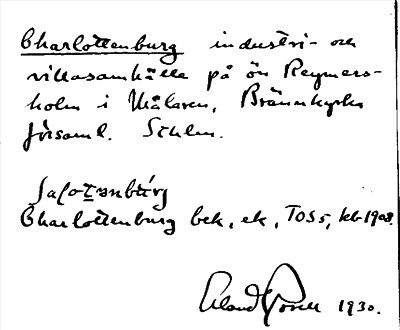 Charlottenburg industri- och
villasamhälle på ön Reymers-
holm i Mälaren, Brännkyrka
församl. Sthlm.
Charlottenburg bek, ek, TOS 5, feb 1908.
1930.